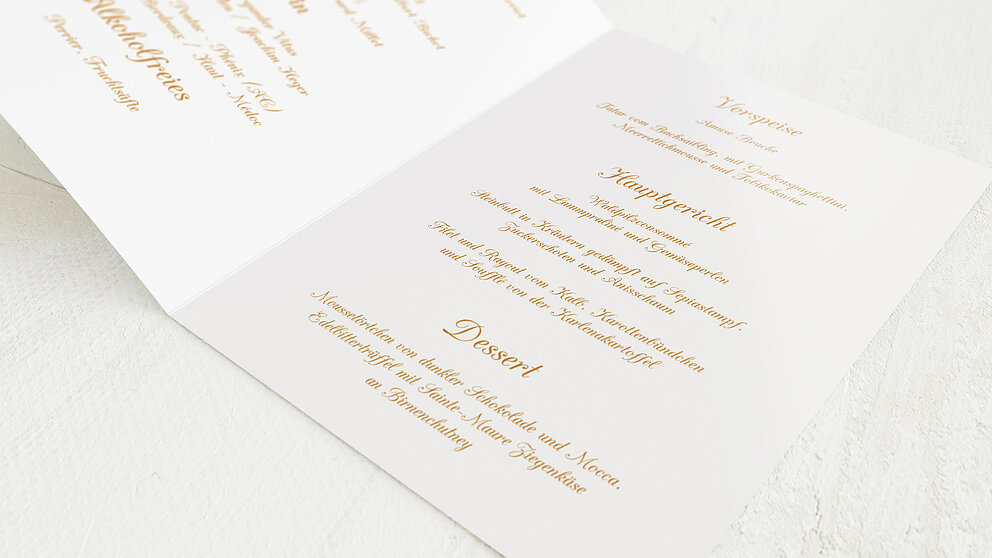 in
Vitus
/ Joachim Heger
Phönix (AC)
Bordeaux / Haut - Médoc
Alkoholfreies
Perrier, Fruchtsäfte
Millet
Vorspeise
Amuse Bouche
Tatar vom Bachsaibling, mit Gurkenspaghettini,
Meerrettichmousse und Tobikokaviar
Hauptgericht
Waldpilzconsommé
mit Lammpraliné und Gemüseperlen
Steinbutt in Kräutern gedämpft auf Sepiastampf,
Zuckerschoten und Anisschaum
Filet und Ragout vom Kalb, Karottenbündchen
und Soufflé von der Karlenakartoffel
Dessert
Moussetörtchen von dunkler Schokolade und Mocca,
Edelbittertrüffel mit Sainte-Maure Ziegenkäse
an Birnenchutney